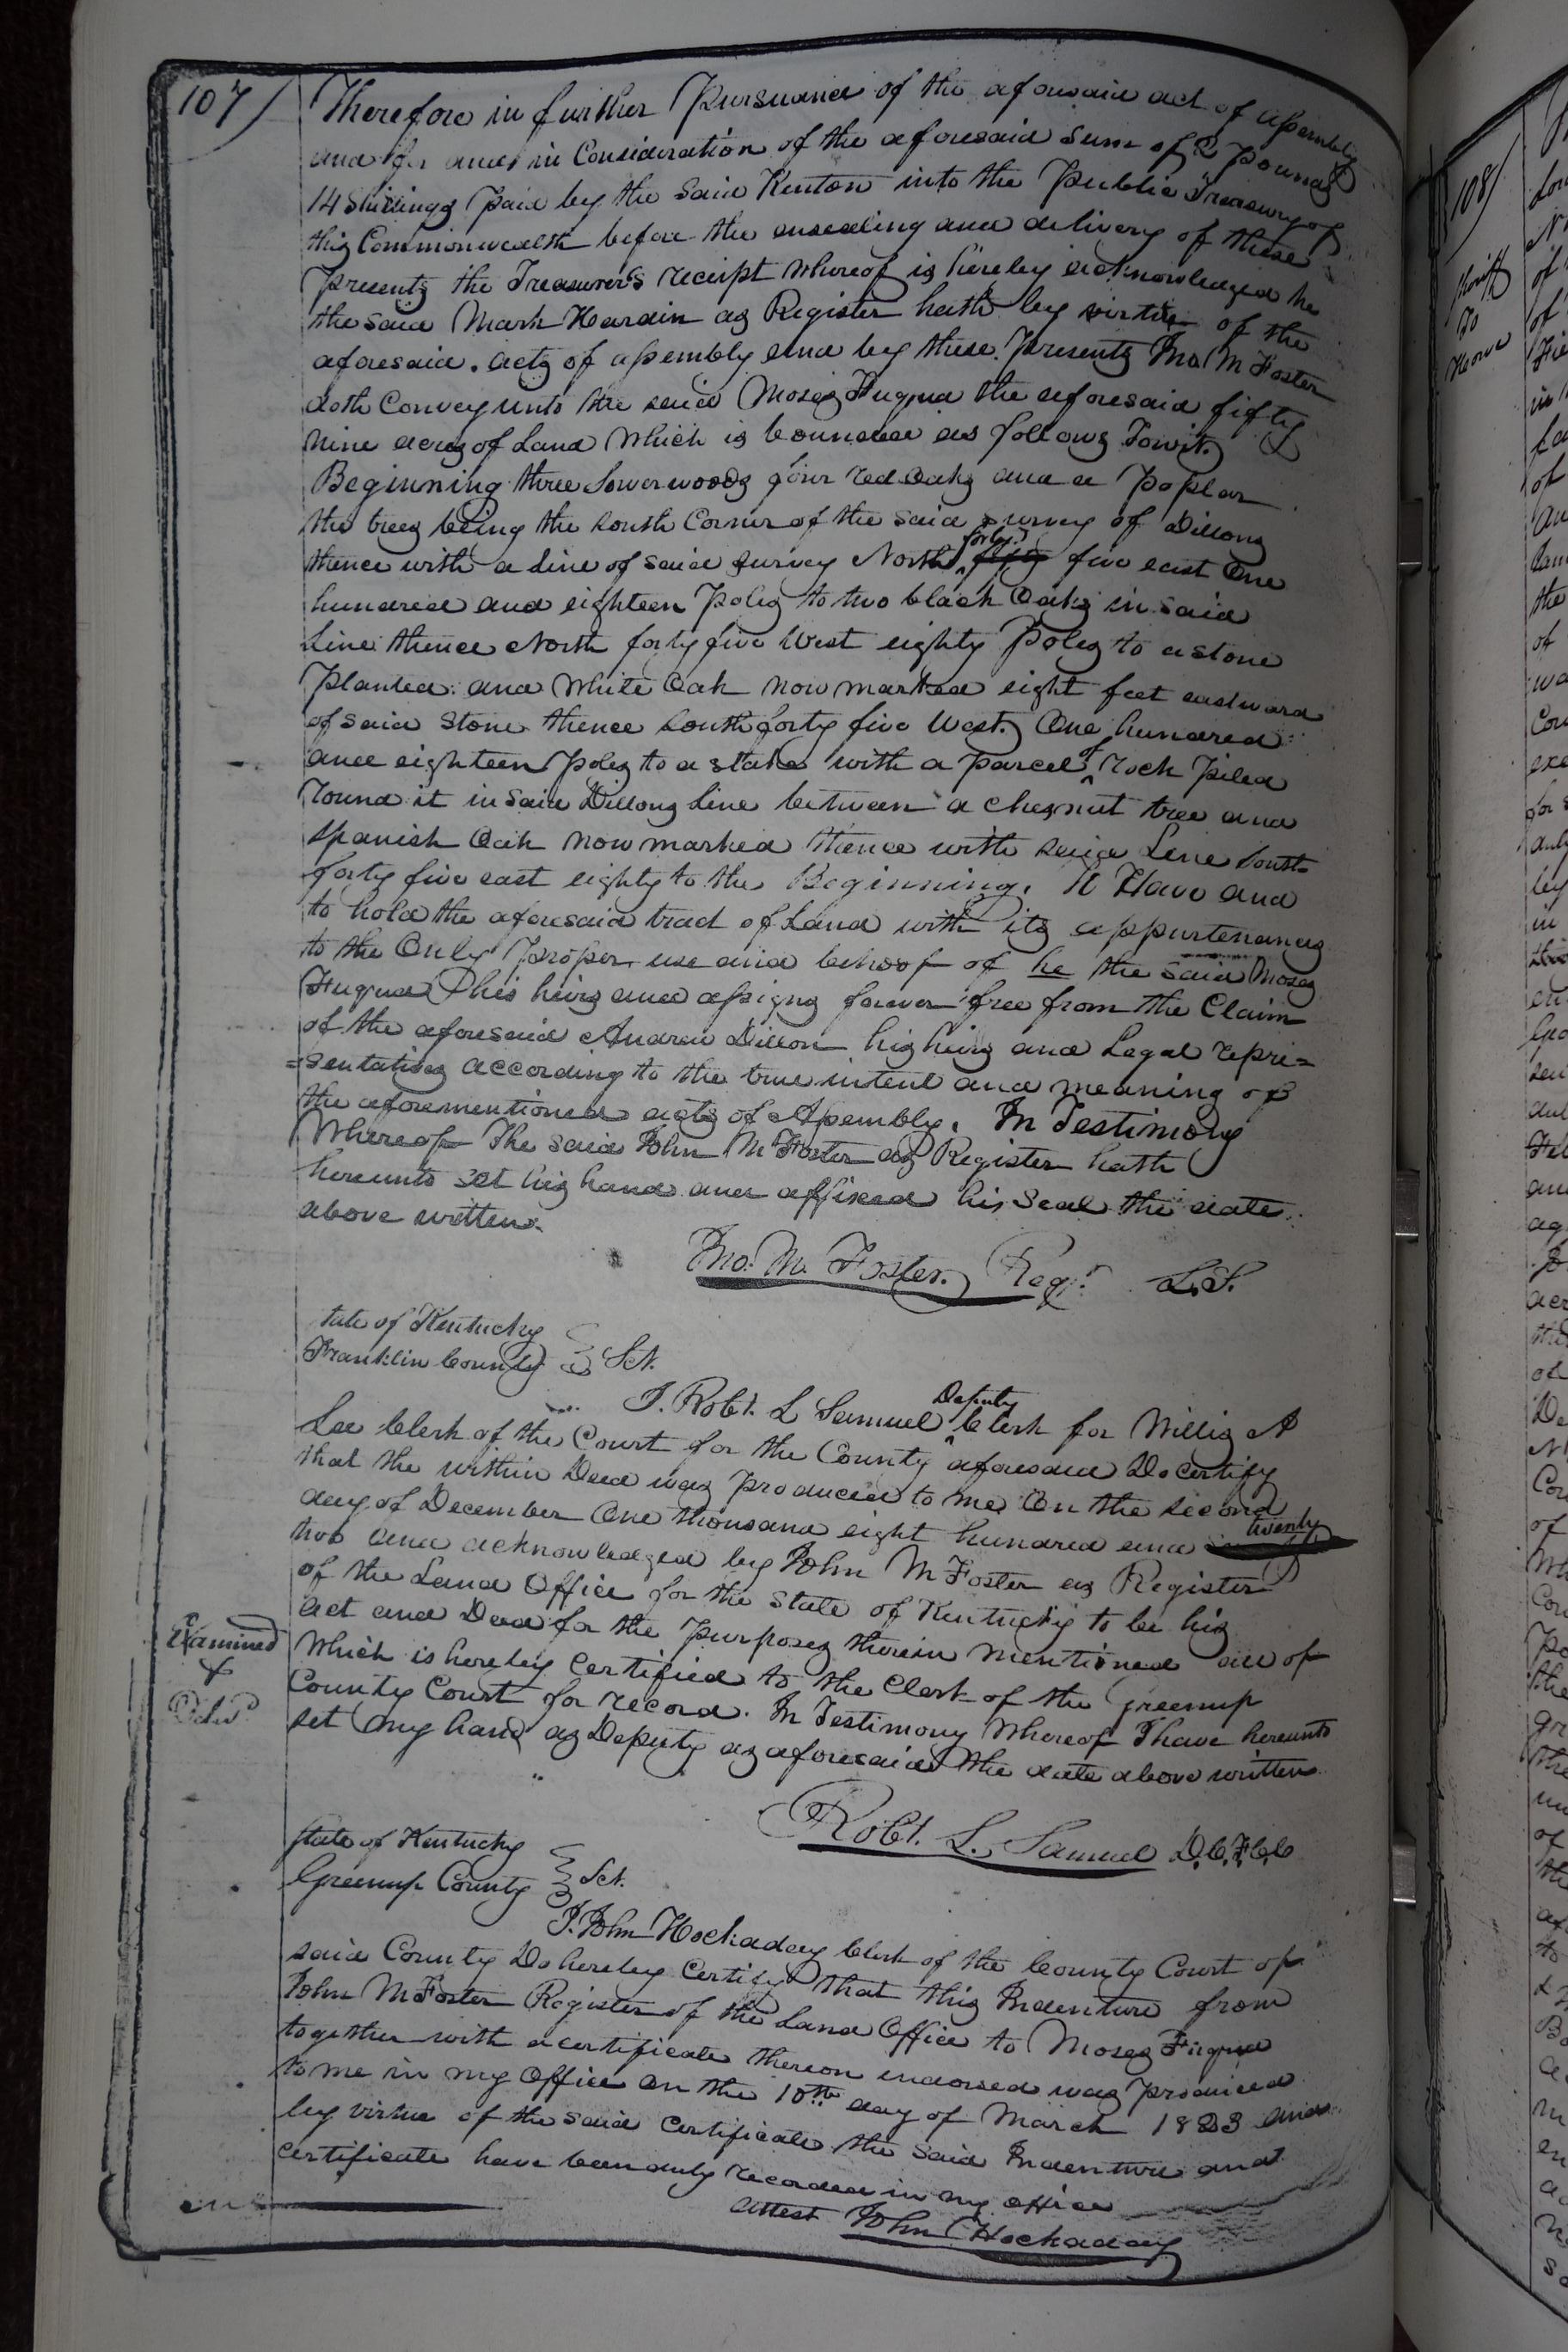 107/
Therefore in further Pursuance of the aforesaid act of assembly
and for and in Consideration of the aforesaid sum of 2 pounds
14 Shillings paid by the said Kenton into the Public Treasury of
this Commonwealth before the ensealing and delivery of these
presents the Treasurer's receipt whereof is hereby acknowledged he
the said Mark Hardin as Register hath by virtue of the
aforesaid acts of assembly and by these presents Jno. M Foster
doth Convey unto the said Moses Fuqua the aforesaid fifty
nine acres of Land which is bounded as follows Towit.
Beginning three Sowerwoods four red Oaks and a Poplar
the trees being the South Corner of the said survey of Dillons
thence with a line of said survey North forty fifty five east One
hundred and eighteen Poles to two black Oaks in said
Line thence North forty five West eighty Poles to a stone
Planted and White Oak now marked eight feet eastward
of said Stone thence South forty five West One hundred
and eighteen Poles to a stake with a parcel of rock piled
round it in said Dillons Line between a Chesnut tree and
Spanish Oak now marked thence with said Line South
forty five east eighty to the Beginning. To Have and
to hold the aforesaid tract of Land with its appurtenances
to the Only proper use and behoof of he the said Moses
Fuqua his heirs and assigns forever free from the Claim
of the aforesaid Andrew Dillon his heirs and Legal repre=
=sentatives according to the true intent and meaning of
the aforementioned acts of Assembly. In Testimony
Whereof The said John M Foster as Register hath
hereunto set his hand and affixed his Seal the date
above written.
Jno. M. Foster. Regr. L.S.
tate of Kentucky
Franklin County Sct.
I. Robt. L Samuel Deputy Clerk for Willis A
Lee Clerk of the Court for the County aforesaid Do Certify
that the within Deed was produced to me On the second
day of December One thousand eight hundred and twenty
two and acknowledged by John M Foster as Register
of the Land Office for the State of Kentucky to be his
Act and Deed for the purposes therein mentioned all of
Which is hereby Certified to the Clerk of the Greenup
County Court for record. In Testimony Whereof I have hereunto
set my hand as Deputy as aforesaid the date above written
Examined
&
Robt. L. Samuel D.C.F.C.C
State of Kentucky
Greenup County Sct.
I. John Hockaday Clerk of the County Court of
said County Do hereby Certify that this Indenture from
John M Foster Register of the Land Office to Moses Fuqua
together with a certificate thereon indorsed was produced
to me in my Office on the 10th day of March 1823 and
by virtue of the said Certificate the said Indenture and
certificate have been duly recorded in my office
attest John Hockaday
108/
to